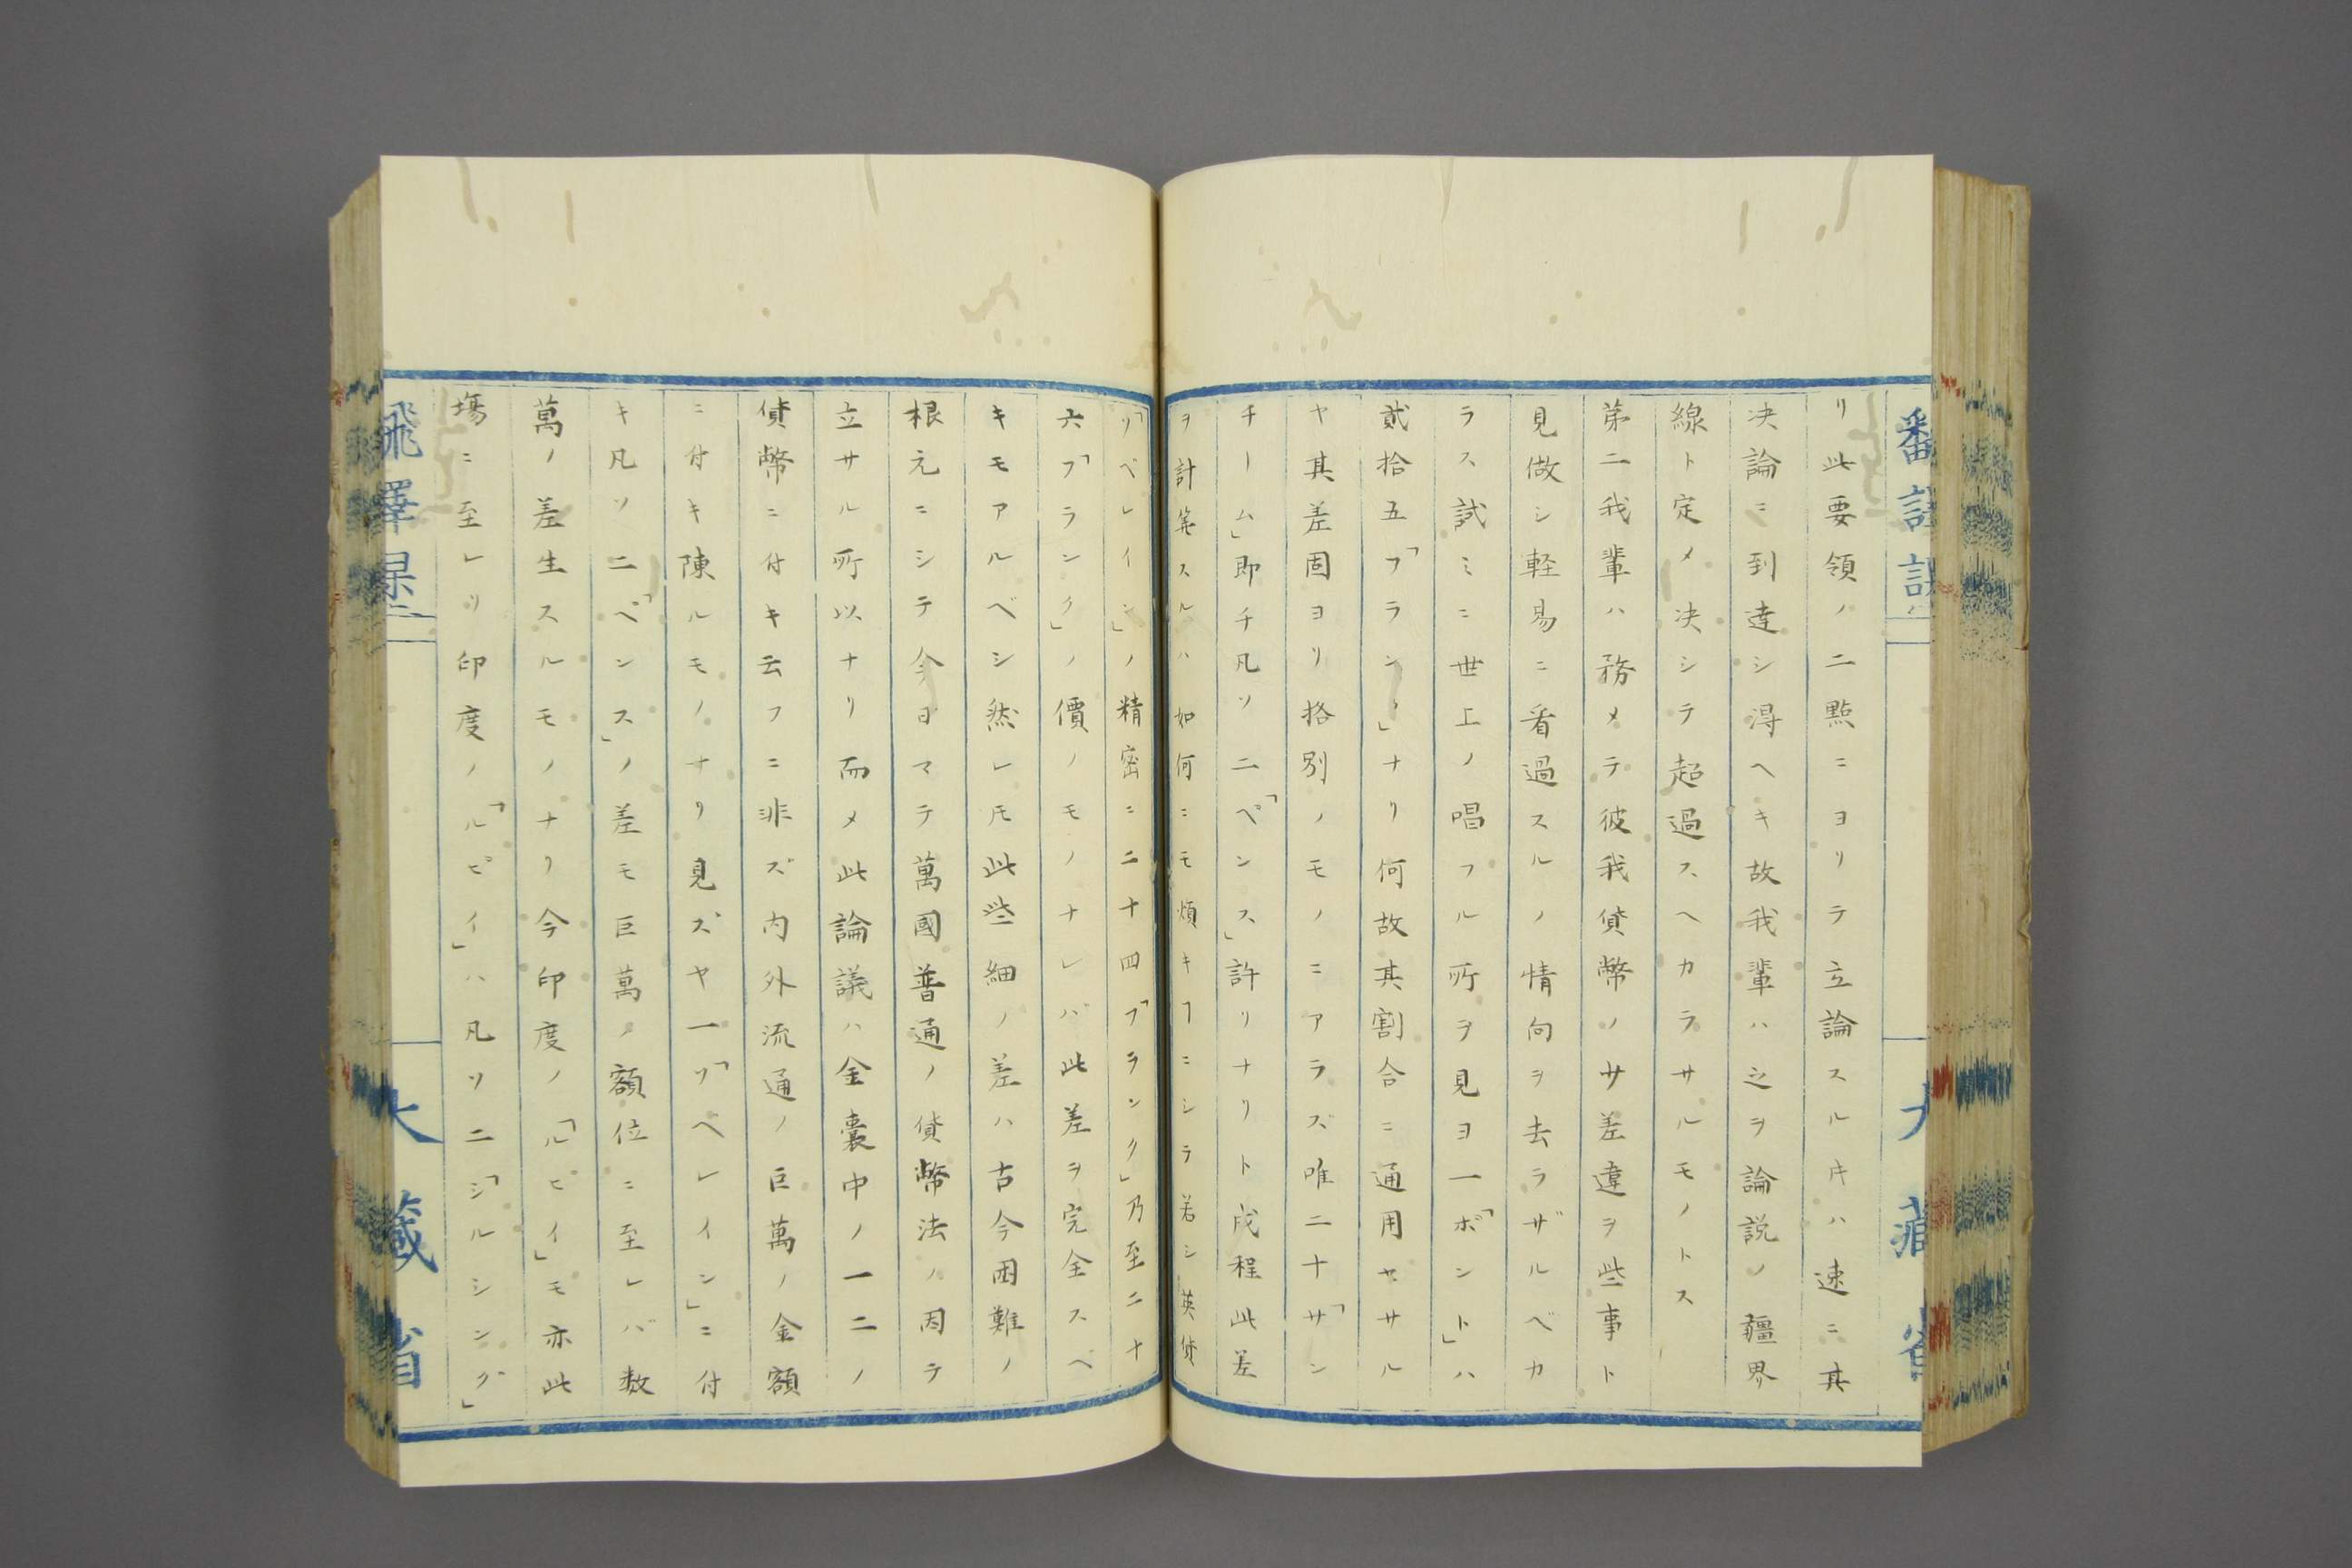 リ此要領ノ二點ニヨリテ立論スル片ハ速ニ其
决論ニ到達シ淂ヘキ故我輩ハ之ヲ論説ノ疆界
線ト定メ决シテ超過スヘカラサルモノトス
苐二我輩ハ務メテ彼我貨幣ノサ差違ヲ些事ト
見做シ軽易ニ看過スルノ情向ヲ去ラザルベカ
ラス試ミニ世上ノ唱フル所ヲ見ヨ一「ポント」ハ
貮拾五「フランク」ナリ何故其割合ニ通用セサル
ヤ其差固ヨリ格別ノモノニアラズ唯二十「サン
チーム」即チ凡ソ二「ペンス」許リナリト成程此差
ヲ計算スルハ如何ニモ煩キヿニシラ若シ英貨
「ソベレイン」ノ精密ニ二十四「フランク」乃至二十
六「フランク」ノ價ノモノナレバ此差ヲ完全スベ
キモアルベシ然レ𪜈此些細ノ差ハ古今困難ノ
根元ニシテ今日マテ萬國普通ノ貨幣法ノ因テ
立サル所以ナリ而メ此論議ハ金嚢中ノ一二ノ
貨幣ニ付キ云フニ非ズ内外流通ノ巨萬ノ金額
ニ付キ陳ルモノナリ見ズヤ一「ソベレイン」ニ付
キ凡ソ二「ペンス」ノ差モ巨萬ノ額位ニ至レバ数
萬ノ差生スルモノナリ今印度ノ「ルピイ」モ亦此
塲ニ至レリ印度ノ「ルピイ」ハ凡ソ二「シルシング」
大藏省
大藏省